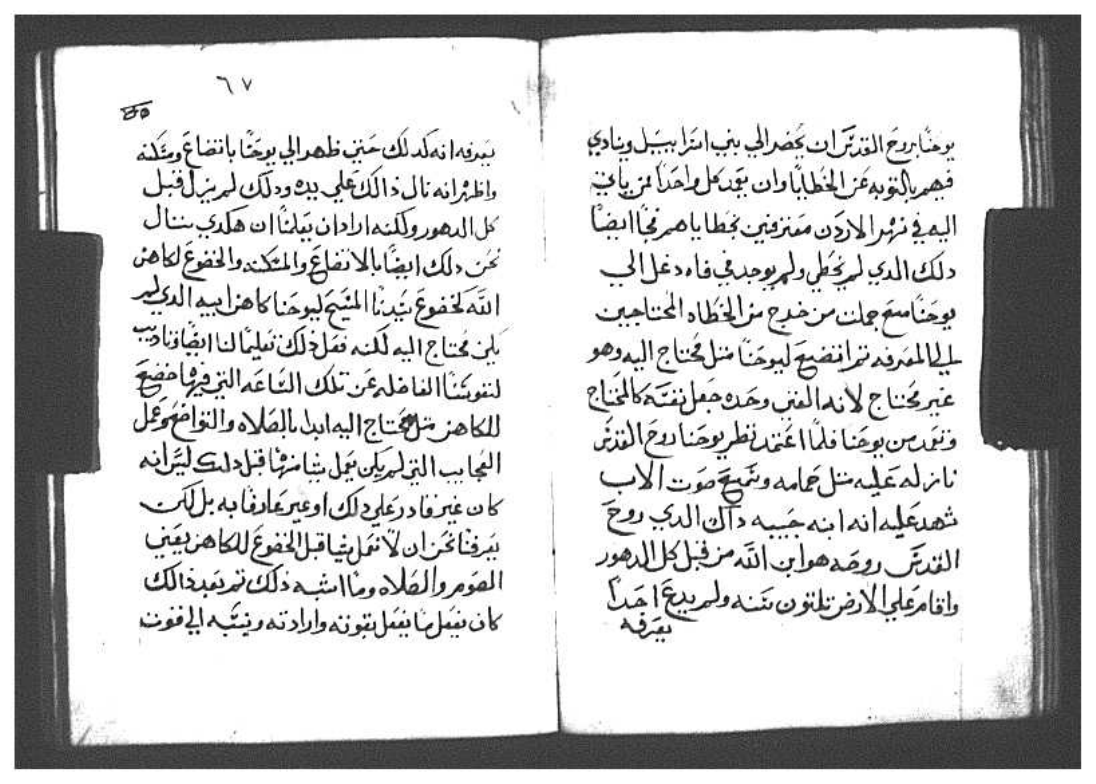 يوحنا بروح القدس ان يحضر الي بني اسراييل وينادي
فيهم بالتوبه عن الخطايا وان يعمد كل واحدا ممن ياتي
اليه في نهر الاردن معترفين بخطاياهم فجا ايضا
دلك الدي لم يخطي ولم يوجد في فاه دغل الي
يوحنا مع جملت من خرج من الخطاه المحتاجين
الي المغفره تم اتضع ليوحنا متل محتاج اليه وهو
غير محتاج لانه الغني وحده جعل نفسه كالمحتاج
وتعمد من يوحنا فلما اعتمد نظر يوحنا روح القدس
نازله عليه متل حمامه وسمع صوت الاب
شهد عليه انه ابنه حبيبه داك الدي روح
القدس روحه هو ابن الله من قبل كل الدهور
واقام علي الارض تلتون سنه ولم يدع احدا
يعرفه
٦٧
يعرفه انه كدلك حتي ظهر الي يوحنا باتضاع ومسكنه
واظهر انه نال ذالك علي يده ودلك لم يزل قبل
كل الدهور ولكنه اراد ان يعلمنا ان هكدي ننال
نحن دلك ايضا بالاتضاع والمسكنه والخضوع لكاهن
الله كخضوع سيدنا المسيح ليوحنا كاهن ابيه الدي لم
يكن محتاج اليه لكنه فعل ذلك تعليما لنا ايضا وتاديب
لنفوسنا الفاضله عن تلك الساعه التي فيها خضع
للكاهن متل محتاج اليه ابدا بالصلاه والتواضع وعمل
العجايب التي لم يكن يعمل شيا منها قبل دلك ليس انه
كان غير قادر علي دلك او غير عارفا به بل لكن
يعرفنا نحن ان لا نعمل شيا قبل الخضوع للكاهن يعني
الصوم والصلاه وما اشبه ذلك تم بعد ذالك
كان يفعل ما يفعل بقوته وارادته وينسبه الي قوت